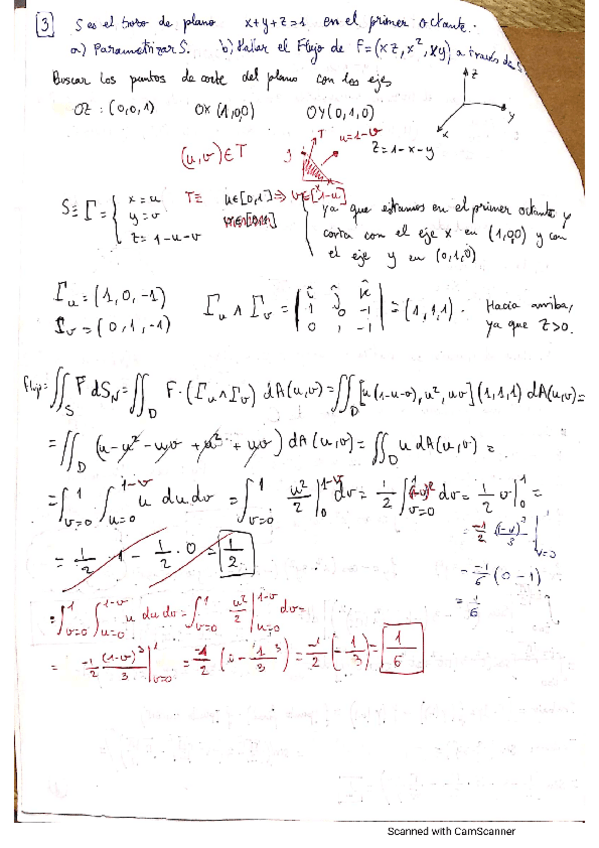 3 S es el trozo de plano x+y+z=1 en el primer octante.
a) Parametrizar S. b) Hallar el Flujo de F=(xz, x², xy) a través de S
Buscar los puntos de corte del plano con los ejes
OZ: (0,0,1) OX (1,0,0) OY (0,1,0)
z
y
x
(u,v)∈T
T
u=1-v
z=1-x-y
S≡Γ={ x=u
y=v
z=1-u-v
T≡ u∈[0,1] ⇒ v∈[1-u]
v∈[0,1]
ya que estamos en el primer octante y
corta con el eje x en (1,0,0) y con
el eje y en (0,1,0)
Γu=(1,0,-1)
Γv=(0,1,-1)
Γu∧Γv = |i j k; 1 0 -1; 0 1 -1| = (1,1,1). Hacia arriba,
ya que z>0.
flujo=∬_S F dS_N = ∬_D F·(Γu∧Γv) dA(u,v) = ∬_D [u(1-u-v), u², uv](1,1,1) dA(u,v)=
=∬_D (u-u²-uv+u²+uv) dA(u,v) = ∬_D u dA(u,v) =
=∫_{v=0}^1 ∫_{u=0}^{1-v} u du dv = ∫_{v=0}^1 u²/2 |_0^{1-v} dv = 1/2 ∫_{v=0}^1 (1-v)² dv = 1/2 v|_0^1 =
= 1/2 · 1 - 1/2 · 0 = 1/2
= -1/2 (1-v)³/3 |_{v=0}
= -1/6 (0-1)
= 1/6
=∫_{v=0}^1 ∫_{u=0}^{1-v} u du dv = ∫_{v=0}^1 u²/2 |_{u=0}^{1-v} dv=
= -1/2 (1-v)³/3 |_{v=0}^1 = -1/2 ( - 1³/3) = -1/2 (-1/3) = 1/6
Scanned with CamScanner